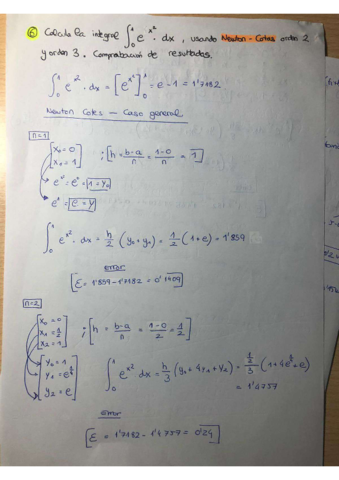 ⑥ Calcula la integral ∫₀¹ e^(x²) · dx, usando Newton-Cotes orden 2
y orden 3. Comprobación de resultados.
∫₀¹ e^(x²) · dx = [e^(x²)]₀¹ = e - 1 = 1'7182
Newton Cotes — Caso general
n=1
[x₀ = 0
x₁ = 1] ; [h = (b-a)/n = (1-0)/n = 1]
e^(x²) = e⁰ = 1 = y₀
e¹ = e = y
∫₀¹ e^(x²) · dx = h/2 (y₀ + y₁) = 1/2 (1+e) = 1'859
error
[ε = 1'859 - 1'7182 = 0'1409]
n=2
[x₀ = 0
x₁ = 1/2
x₂ = 1] ; [h = (b-a)/n = (1-0)/2 = 1/2]
[y₀ = 1
y₁ = e^(1/4)
y₂ = e] ∫₀¹ e^(x²) dx = h/3 (y₀ + 4y₁ + y₂) = (1/2)/3 (1 + 4e^(1/4) + e)
= 1'4757
error
[ε = 1'7182 - 1'4757 = 0'24]